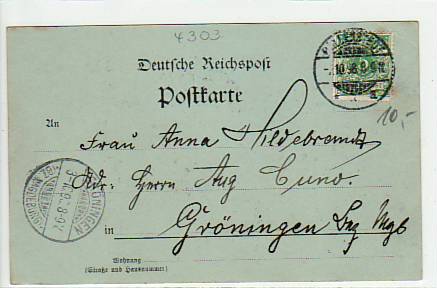 4303
Deutsche Reichspost
Postkarte
10,-
An
Frau Anna Hildebrandt
Adr: Herrn Aug Cuno.
in Gröningen Bez Mgb
Wohnung
(Straße und Hausnummer)